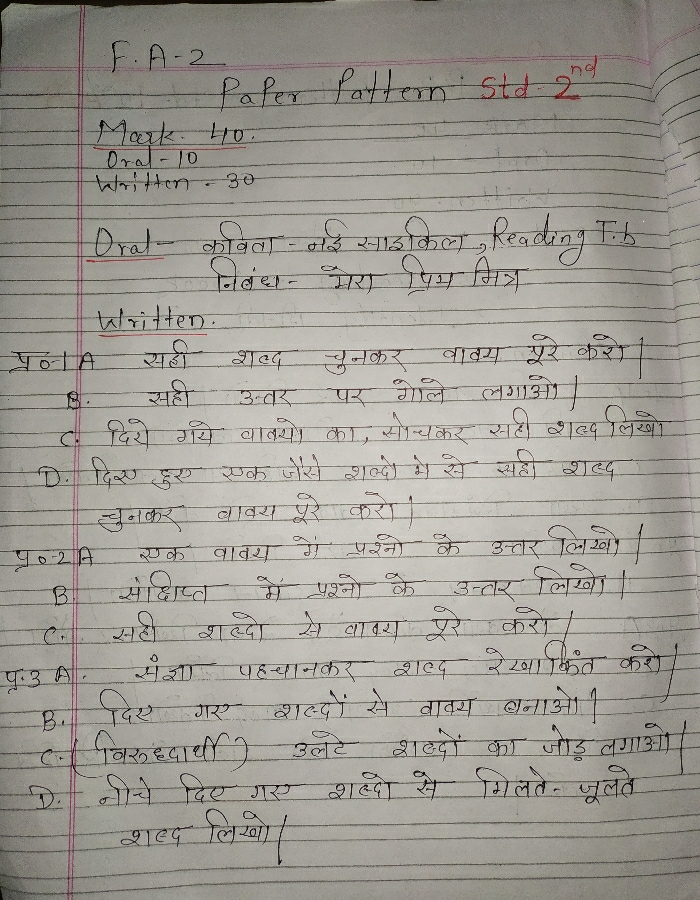 F.A-2
Paper Pattern Std-2nd
Mark. 40.
Oral-10
Written-30
Oral- कविता-नई साइकिल, Reading T.b
निबंध- मेरा प्रिय मित्र
Written.
प्र०-1A सही शब्द चुनकर वाक्य पूरे करो|
B. सही उत्तर पर गोले लगाओ|
C. दिये गये वाक्यो का, सोचकर सही शब्द लिखो
D. दिए हुए एक जैसे शब्दो मे से सही शब्द
चुनकर वाक्य पूरे करो|
प्र०-2A एक वाक्य में प्रश्नो के उत्तर लिखो|
B. संक्षिप्त में प्रश्नो के उत्तर लिखो|
C. सही शब्दो से वाक्य पूरे करो|
प्र.3 A. संज्ञा पहचानकर शब्द रेखाकिंत करो|
B. दिए गए शब्दों से वाक्य बनाओ|
C. (विरुध्दार्थी) उलटे शब्दों का जोड़ लगाओ|
D. नीचे दिए गए शब्दो से मिलते-जूलते
शब्द लिखो|